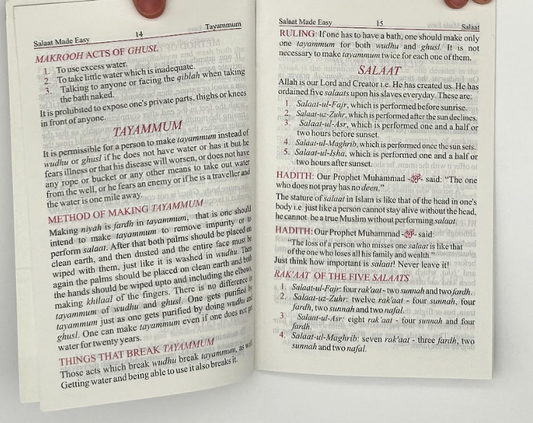 Salaat Made Easy 14 Tayammum
MAKROOH ACTS OF GHUSL
1. To use excess water.
2. To take little water which is inadequate.
3. Talking to anyone or facing the qiblah when taking
the bath naked.
It is prohibited to expose one's private parts, thighs or knees
in front of anyone.
TAYAMMUM
It is permissible for a person to make tayammum instead of
wudhu or ghusl if he does not have water or has it but he
fears illness or that his disease will worsen, or does not have
any rope or bucket or any other means to take out water
from the well, or he fears an enemy or if he is a traveller and
the water is one mile away.
METHOD OF MAKING TAYAMMUM
Making niyah is fardh in tayammum, that is one should
intend to make tayammum to remove impurity or to
perform salaat. After that both palms should be placed on
clean earth, and then dusted and the entire face must be
wiped with them, just like it is washed in wudhu. Then
again the palms should be placed on clean earth and both
the hands should be wiped upto and including the elbows,
making khilaal of the fingers. There is no difference in
tayammum of wudhu and ghusl. One gets purified by
tayammum just as one gets purified by doing wudhu and
ghusl. One can make tayammum even if one does not get
water for twenty years.
THINGS THAT BREAK TAYAMMUM
Those acts which break wudhu break tayammum, as well.
Getting water and being able to use it also breaks it.
Salaat Made Easy 15 Salaat
RULING: If one has to have a bath, one should make only
one tayammum for both wudhu and ghusl. It is not
necessary to make tayammum twice for each one of them.
SALAAT
Allah is our Lord and Creator i.e. He has created us. He has
ordained five salaats upon his slaves everyday. These are:
1. Salaat-ul-Fajr, which is performed before sunrise.
2. Salaat-uz-Zuhr, which is performed after the sun declines.
3. Salaat-ul-Asr, which is performed one and a half or
two hours before sunset.
4. Salaat-ul-Maghrib, which is performed once the sun sets.
5. Salaat-ul-Isha, which is performed one and a half or
two hours after sunset.
HADITH: Our Prophet Muhammad ﷺ said: "The one
who does not pray has no deen."
The stature of salaat in Islam is like that of the head in one's
body i.e. just like a person cannot stay alive without the head,
he cannot be a true Muslim without performing salaat.
HADITH: Our Prophet Muhammad ﷺ said
"The loss of a person who misses one salaat is like that
of the one who loses all his family and wealth."
Just think how important is salaat! Never leave it!
RAK'AAT OF THE FIVE SALAATS
1. Salaat-ul-Fajr: four rak'aat - two sunnah and two fardh.
2. Salaat-uz-Zuhr: twelve rak'aat - four sunnah, four
fardh, two sunnah and two nafal.
3. Salaat-ul-Asr: eight rak'aat - four sunnah and four
fardh.
4. Salaat-ul-Maghrib: seven rak'aat - three fardh, two
sunnah and two nafal.